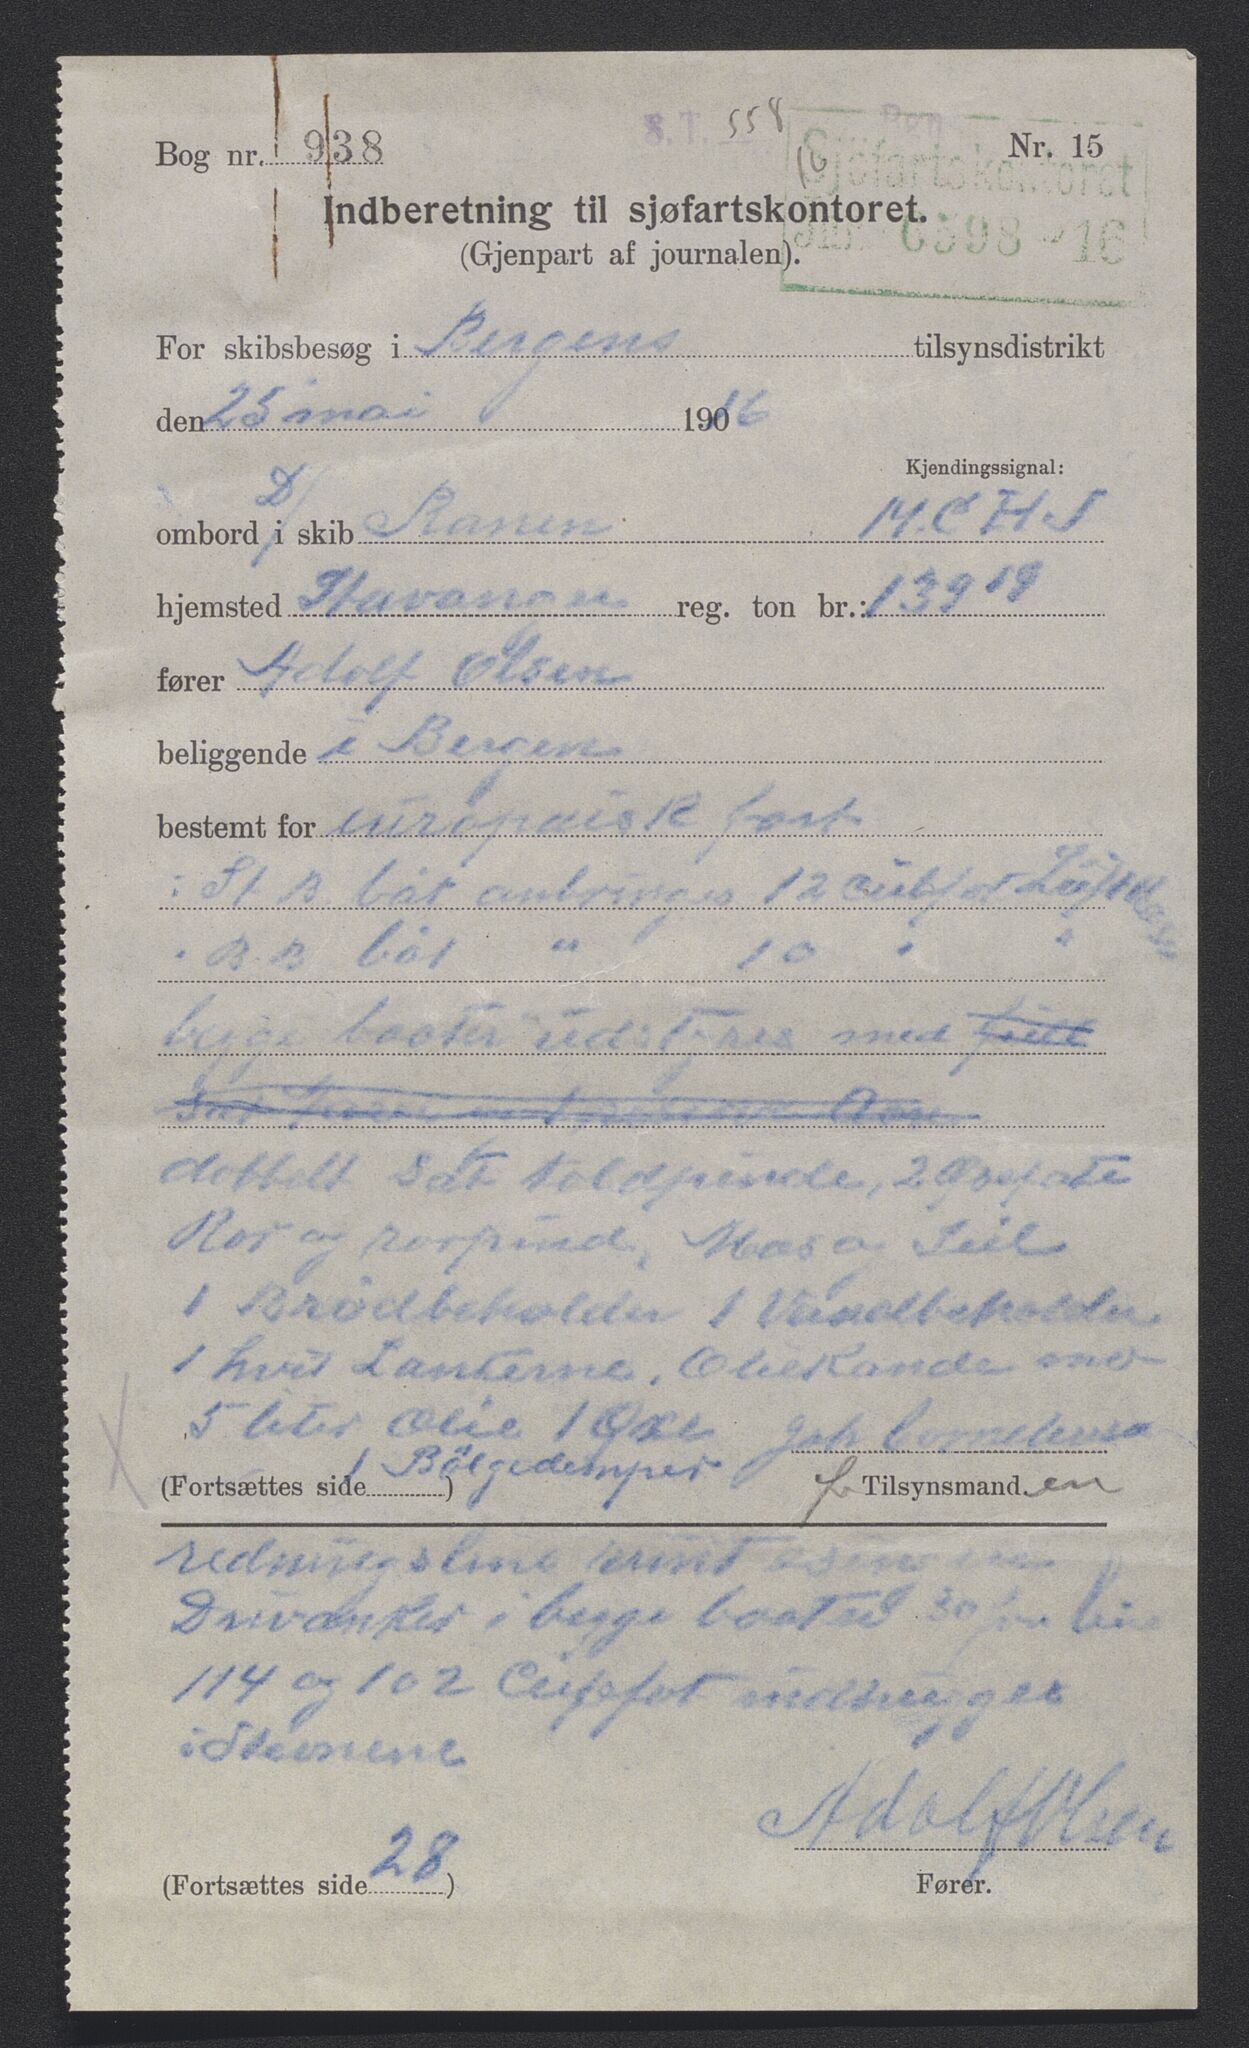 S.T. 558
Bog nr. 938
Nr. 15
Sjøfartskontoret
Jnr. 6598 - 16
Indberetning til sjøfartskontoret.
(Gjenpart af journalen).
For skibsbesøg i Bergens tilsynsdistrikt
den 25 mai 1916
Kjendingssignal:
D/ ombord i skib Ranen M.C.H.J
hjemsted Stavanger reg. ton br.: 139 19
fører Adolf Olsen
beliggende i Bergen
bestemt for europæisk fart
i St. B. båt anbringes 12 Cubfot Luftkasse
i B.B båt " 10 " "
begge baater udstyres med
dobbelt sæt toldpinde, 2 Øsefate
Ror og rorpind, Mas og Seil
1 Brödbeholder 1 Vandbeholder
1 hvit Lanterne, Oliekande med
5 liter Olie 1 Øxe Joh Cornelius
1 Bölgedemper
(Fortsættes side ) f. Tilsynsmand. en
redningsline rundt
Drivanker i begge baater 30 line
114 og 102 Cubfot indhugges
i Stevnene
Adolf Olsen
(Fortsættes side 28) Fører.